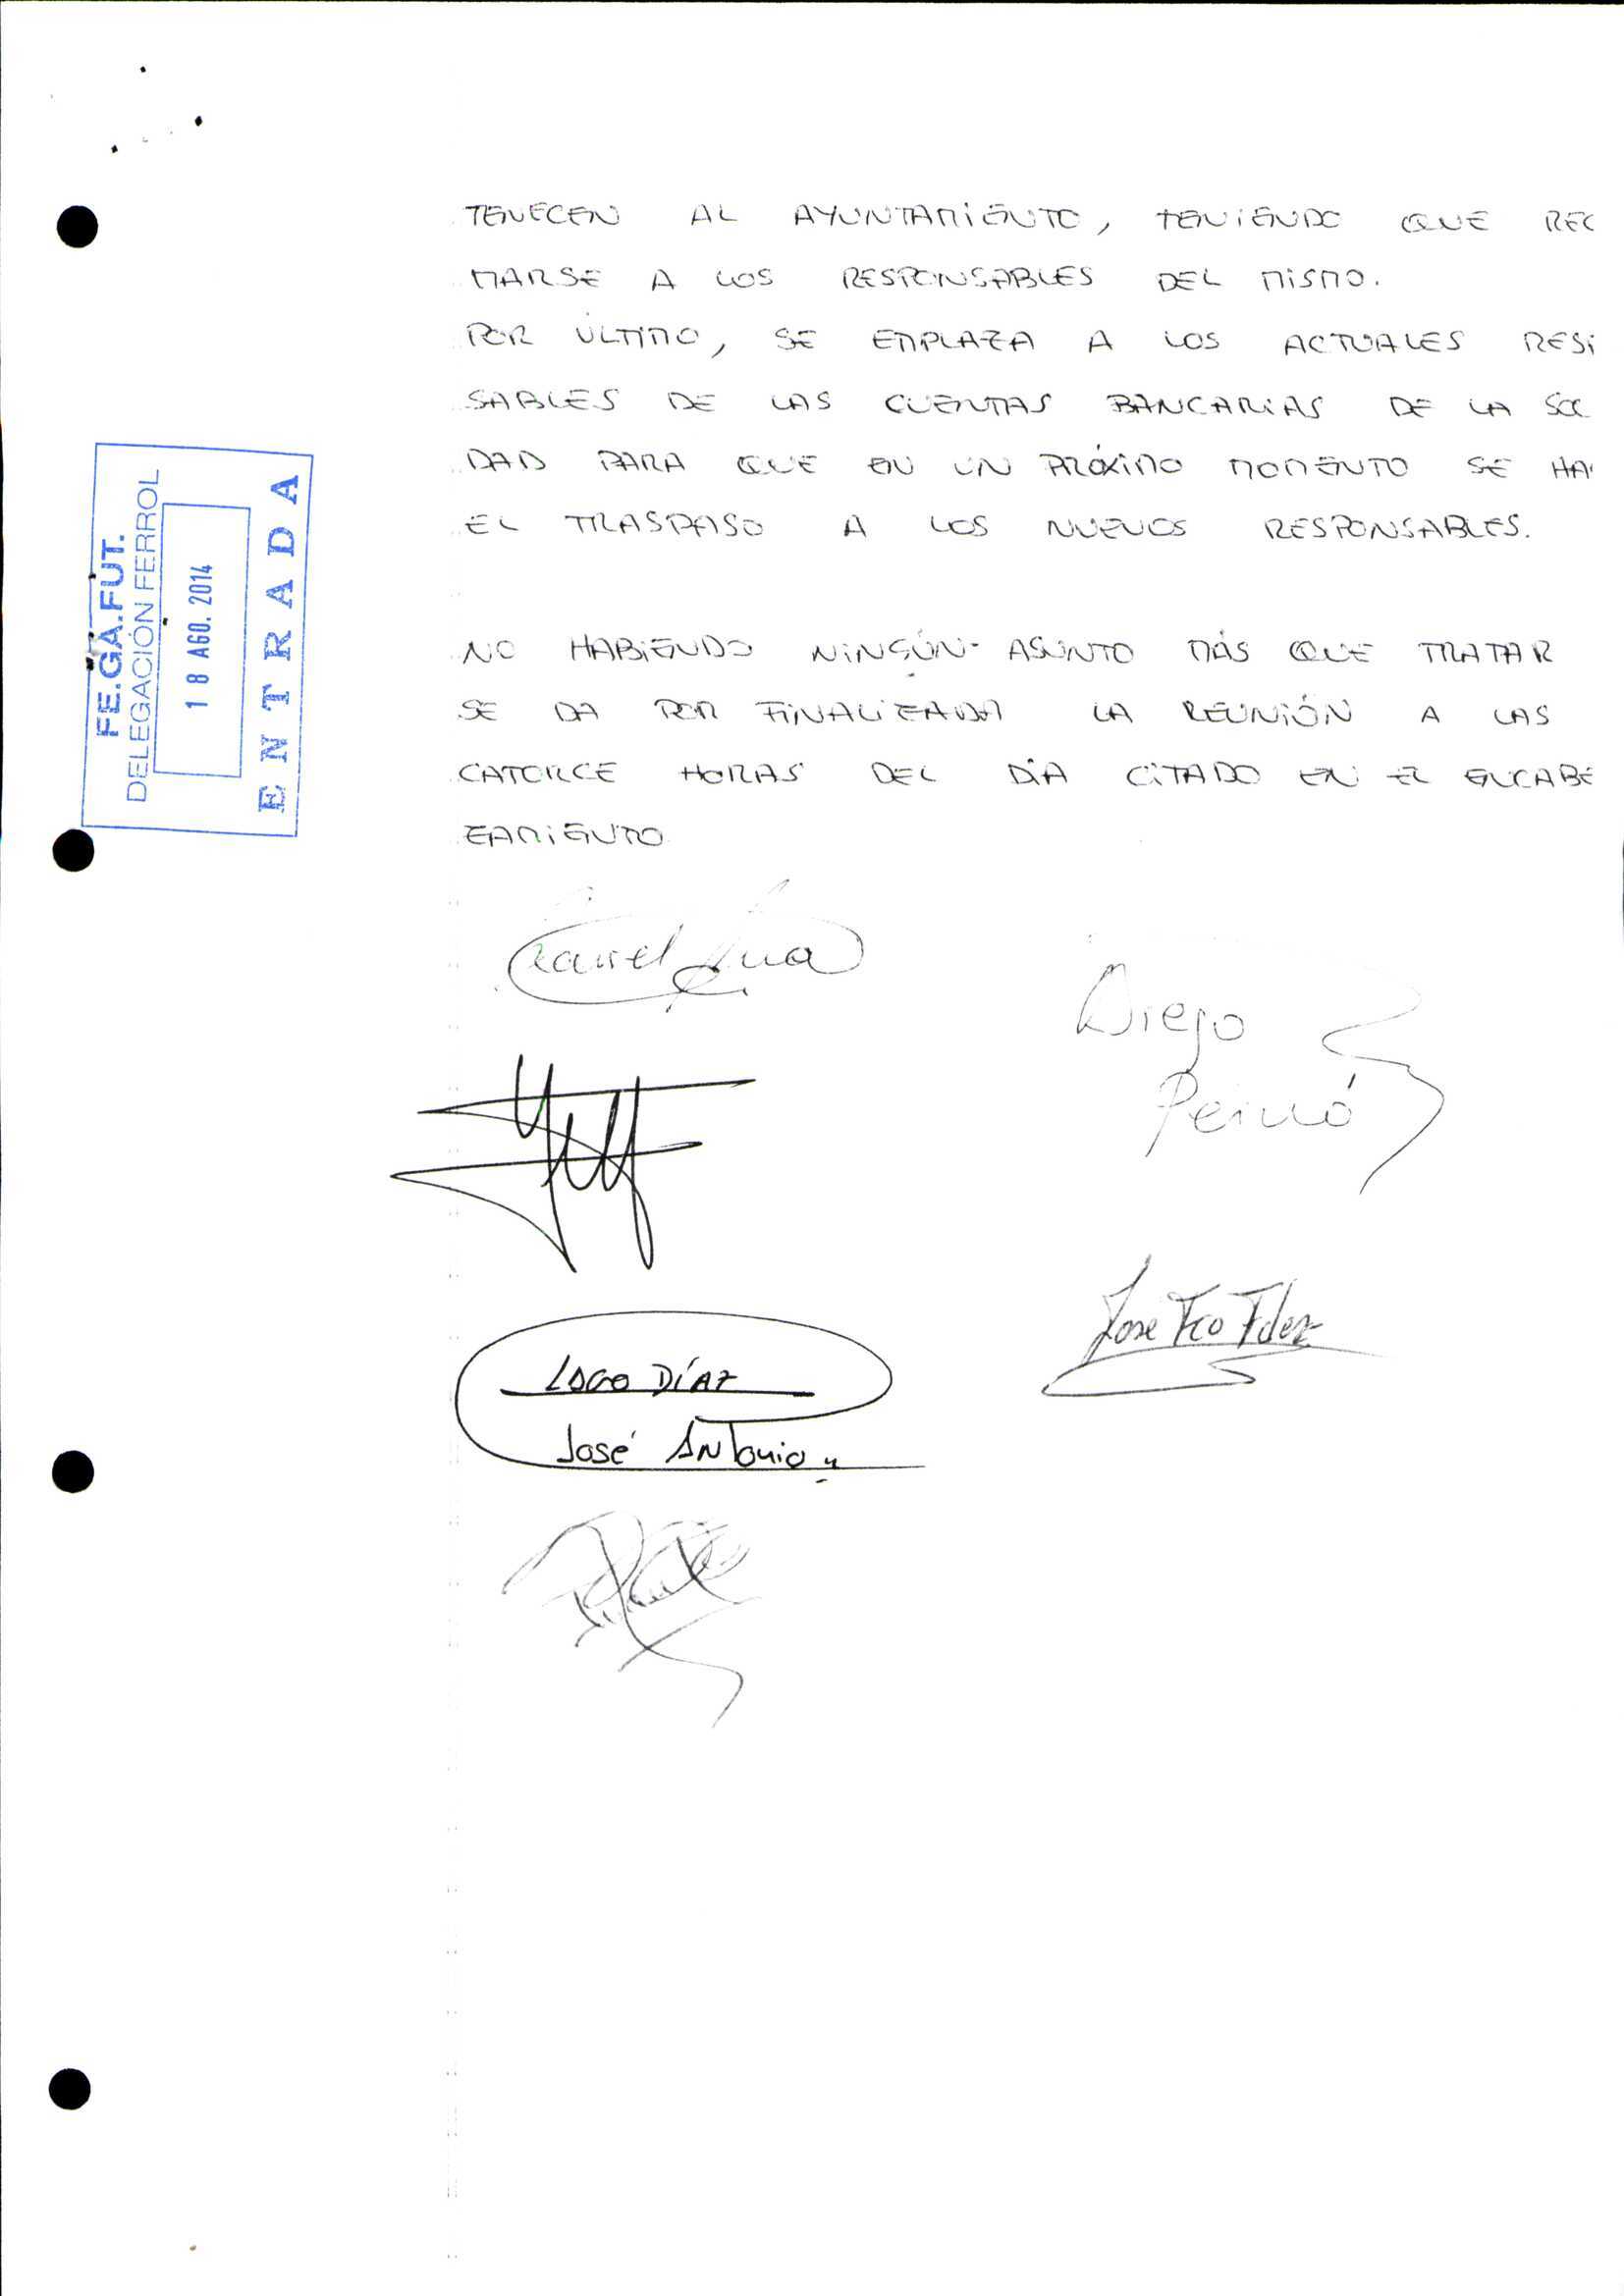 TENECEN AL AYUNTAMIENTO, TENIENDO QUE REC
MARSE A LOS RESPONSABLES DEL MISMO.
POR ÚLTIMO, SE EMPLAZA A LOS ACTUALES RES
SABLES DE LAS CUENTAS BANCARIAS DE LA SOC
DAD PARA QUE EN UN PRÓXIMO MOMENTO SE HA
EL TRASPASO A LOS NUEVOS RESPONSABLES.
NO HABIENDO NINGÚN ASUNTO MÁS QUE TRATAR
SE DA POR FINALIZADA LA REUNIÓN A LAS
CATORCE HORAS DEL DÍA CITADO EN EL ENCABE
ZAMIENTO
FE.GA.FUT.
DELEGACIÓN FERROL
18 AGO. 2014
ENTRADA
Diego
Jose Fco Fdez
LAGO DÍAZ
José Antonio